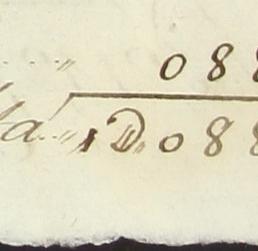 .... " 088
ta .. " 1D. 088